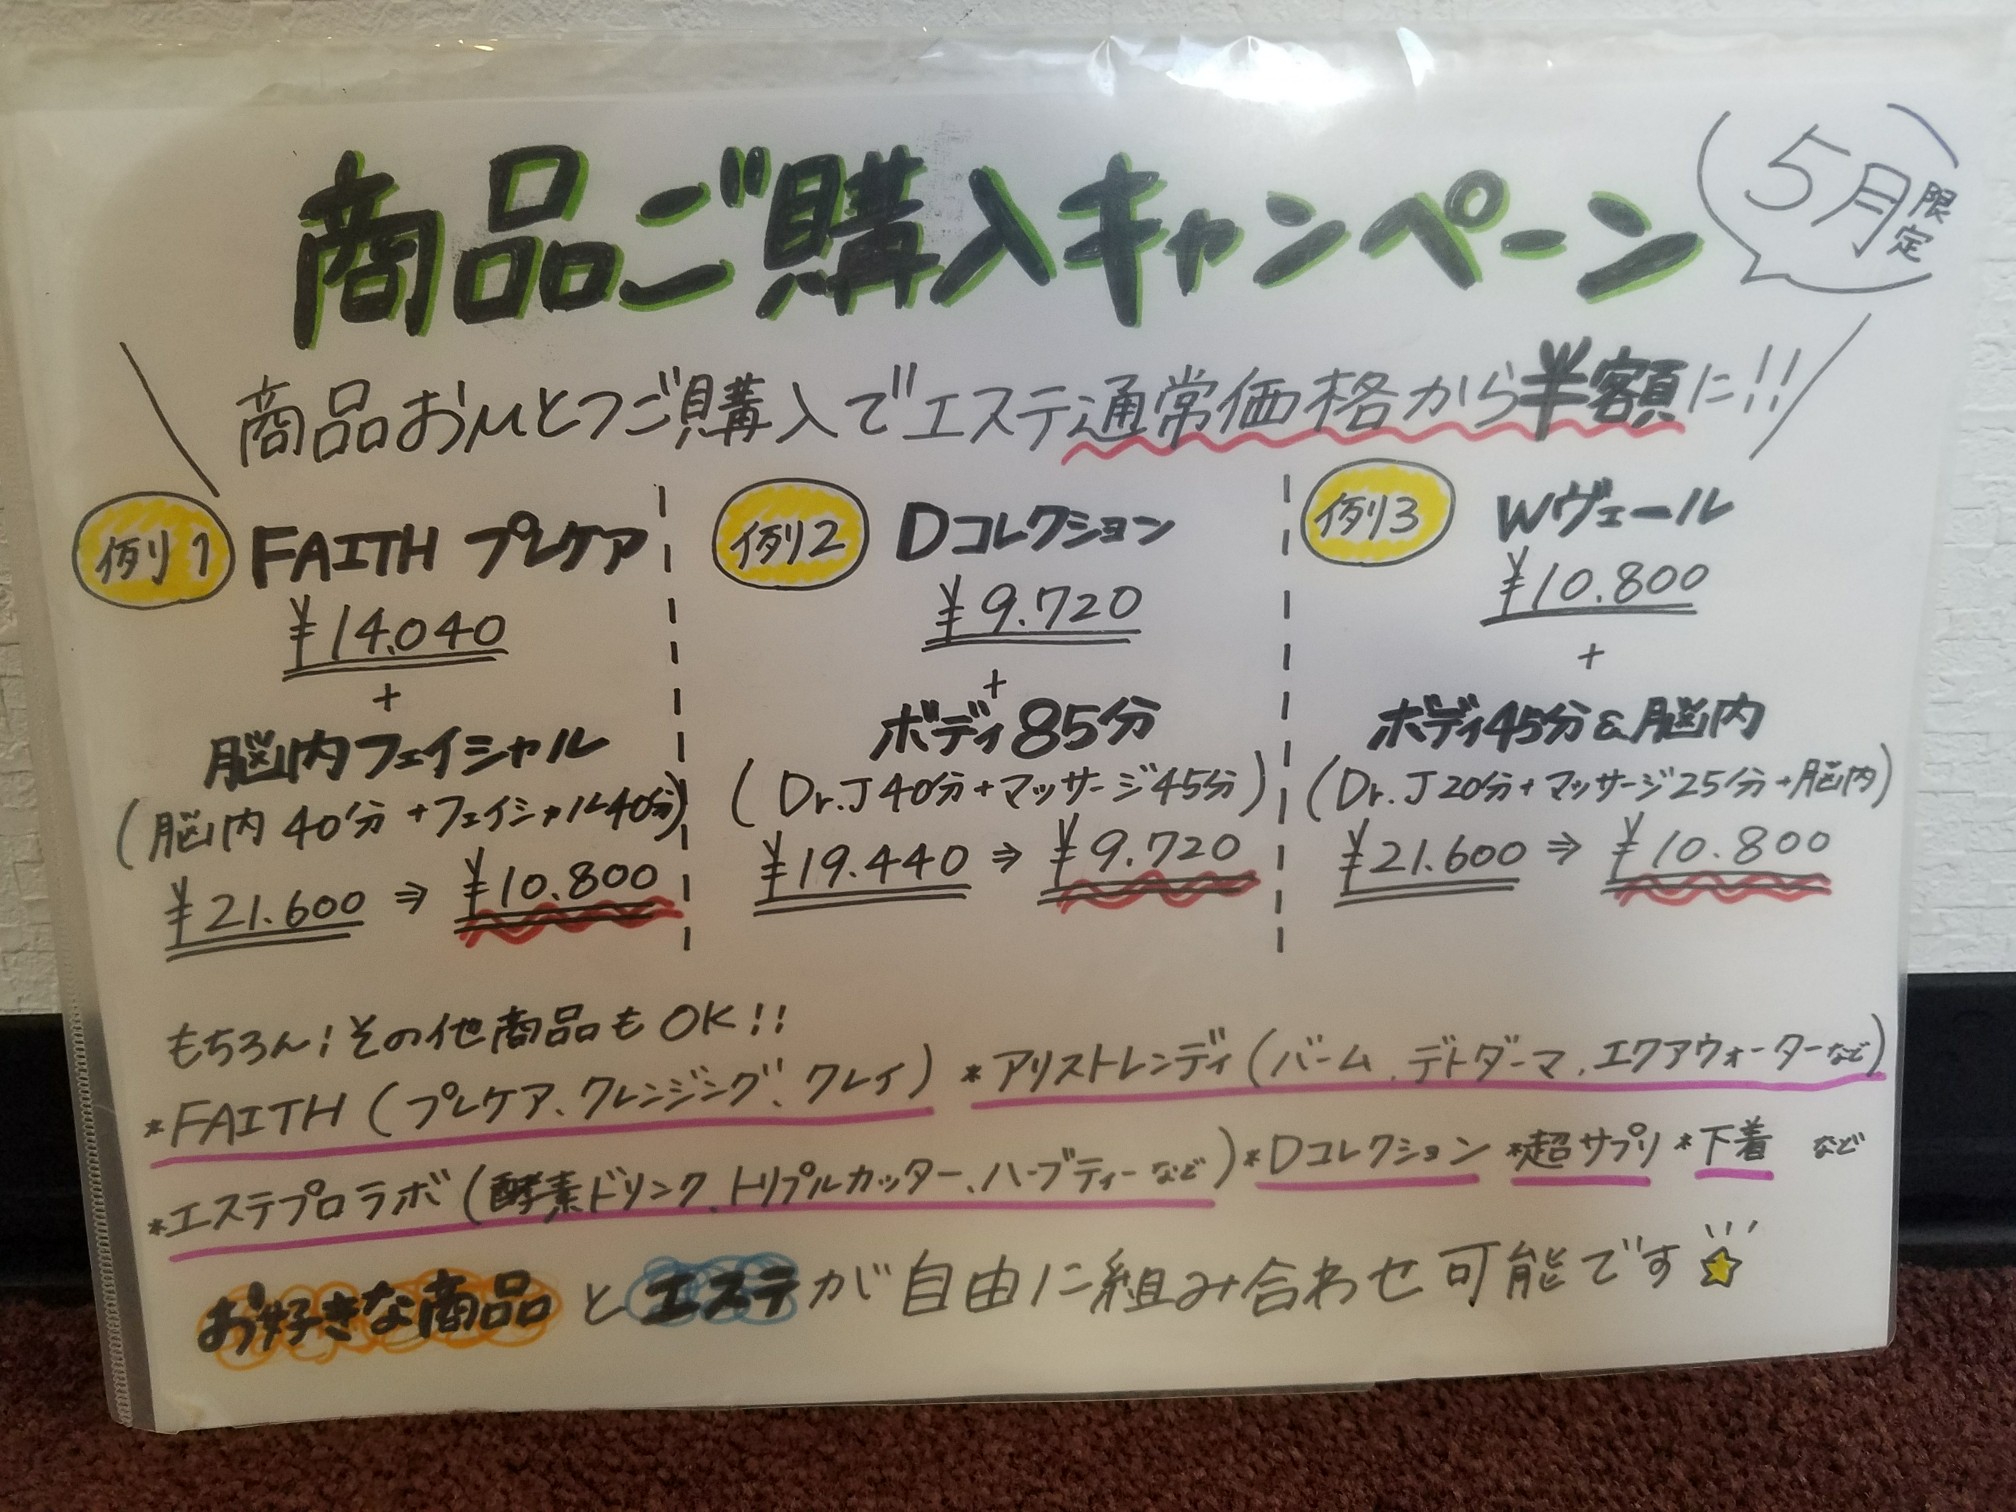 商品ご購入キャンペーン
5月限定
商品おひとつご購入でエステ通常価格から半額に!!
例1 FAITH プレケア
¥14.040
+
脳内フェイシャル
(脳内40分+フェイシャル40分)
¥21.600 ⇒ ¥10.800
例2 Dコレクション
¥9.720
+
ボディ85分
(Dr.J40分+マッサージ45分)
¥19.440 ⇒ ¥9.720
例3 Wヴェール
¥10.800
+
ボディ45分&脳内
(Dr.J20分+マッサージ25分+脳内)
¥21.600 ⇒ ¥10.800
もちろん!その他商品もOK!!
*FAITH(プレケア、クレンジング、クレイ) *アリストレンディ(バーム、デトダーマ、エクアウォーターなど)
*エステプロラボ(酵素ドリンク、トリプルカッター、ハーブティーなど)*Dコレクション *超サプリ *下着 など
お好きな商品とエステが自由に組み合わせ可能です